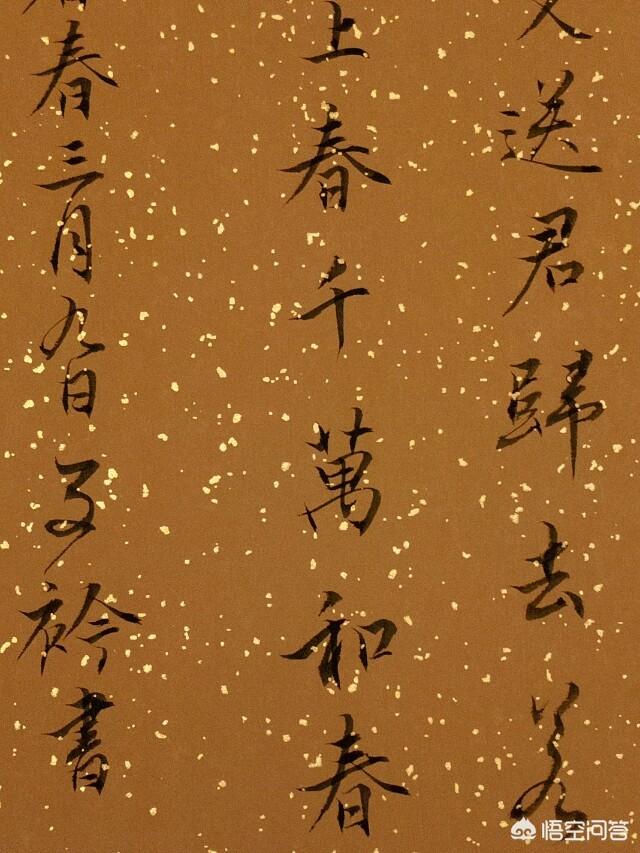 又送君歸去若
上春千萬和春
春三月九日子衿書
悟空问答